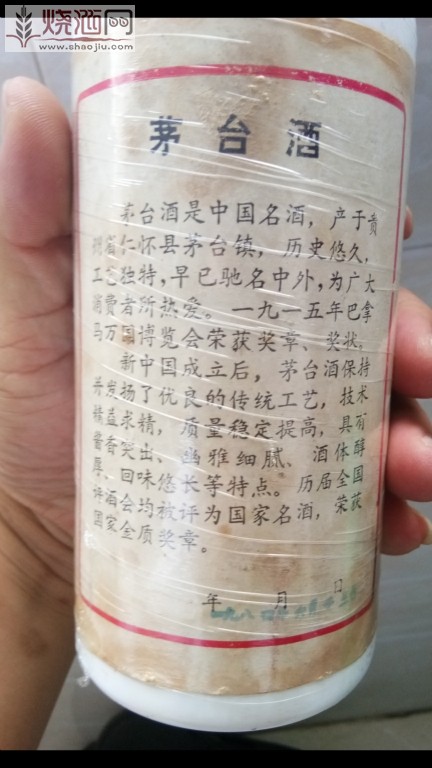 烧酒网
www.shaojiu.com
茅台酒
茅台酒是中国名酒，产于贵
州省仁怀县茅台镇，历史悠久，
工艺独特，早已驰名中外，为广大
消费者所热爱。一九一五年巴拿
马万国博览会荣获奖章、奖状。
新中国成立后，茅台酒保持
并发扬了优良的传统工艺，技术
精益求精，质量稳定提高，具有
酱香突出、幽雅细腻、酒体醇
厚、回味悠长等特点。历届全国
评酒会均被评为国家名酒，荣获
国家金质奖章。
年 月 日
一九八四年